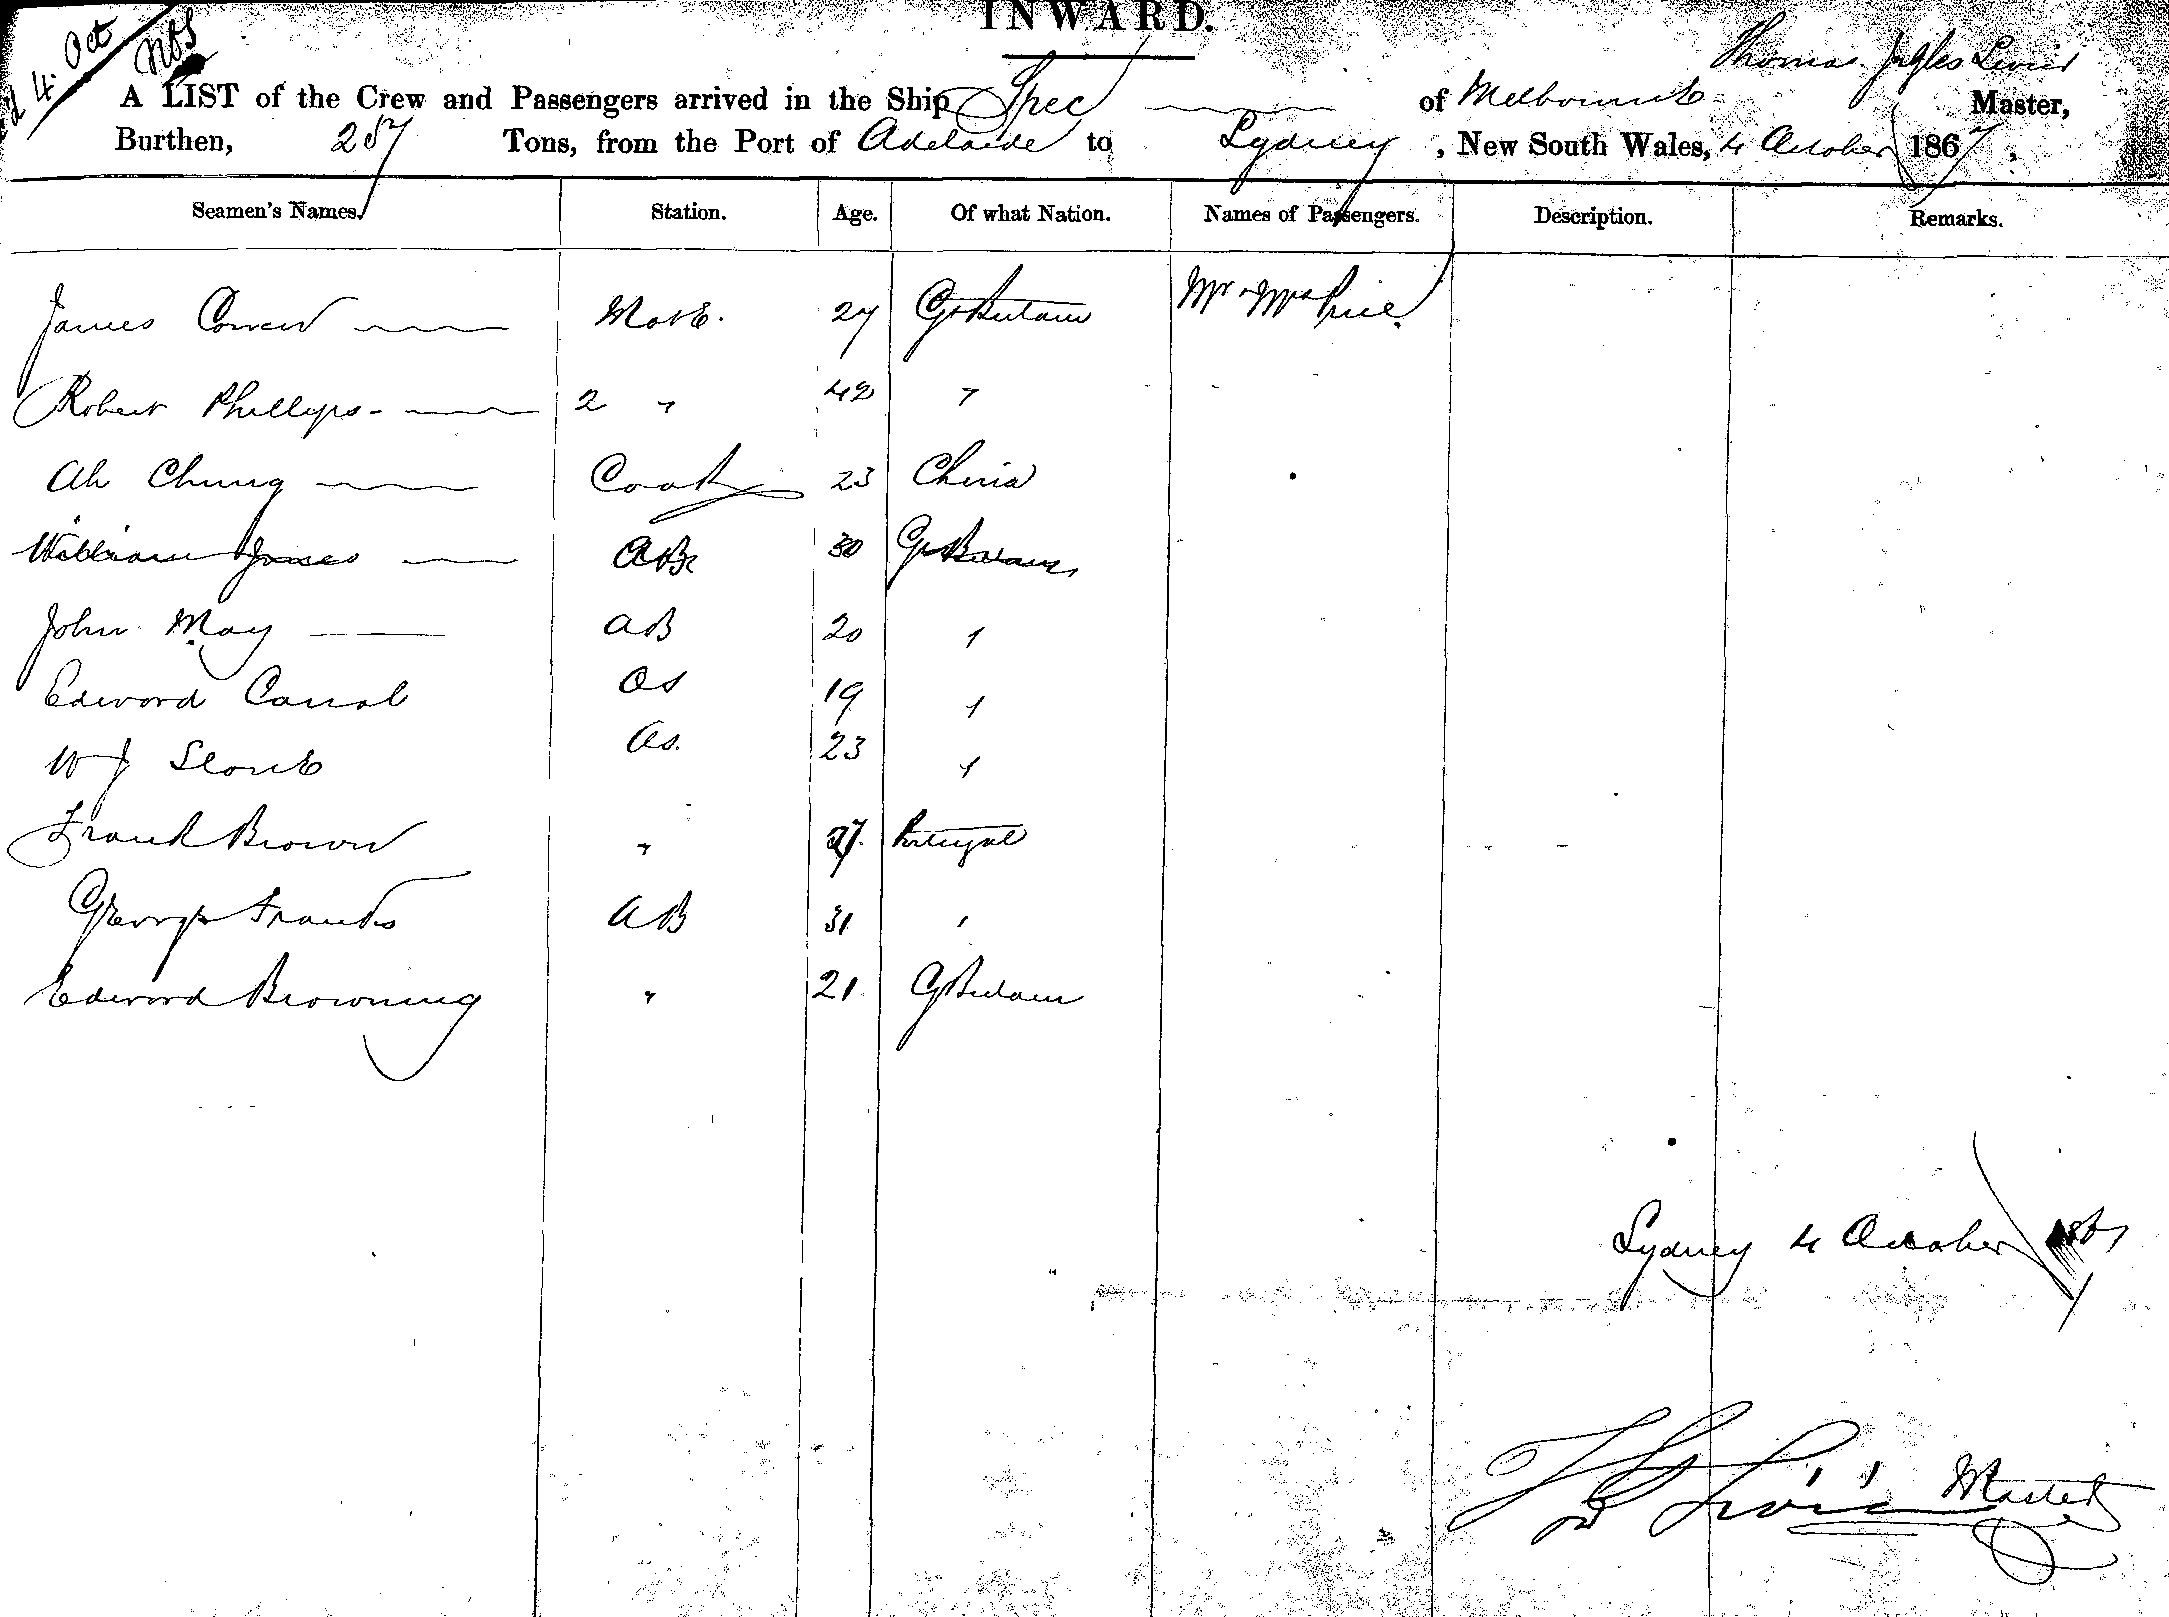 INWARD.
4. Oct
A LIST of the Crew and Passengers arrived in the Ship Spec of Melbourne Thomas Master,
Burthen, 257 Tons, from the Port of Adelaide to Sydney, New South Wales, 4 October 1867.
Seamen's Names. Station. Age. Of what Nation. Names of Passengers. Description. Remarks.
James Mate. 27 Gt Britain Mr Mrs Price.
Robert Phillips 2 " 42 "
Ah Chung Cook 23 China
William Jones AB 30 Gt Britain
John May AB 20 "
Edward Carrol OS 19 "
W J OS. 23 "
Frank Brown " Portugal
George Franks AB 31 "
Edward Browning " 21 G Britain
Sydney 4 October 1867
Master